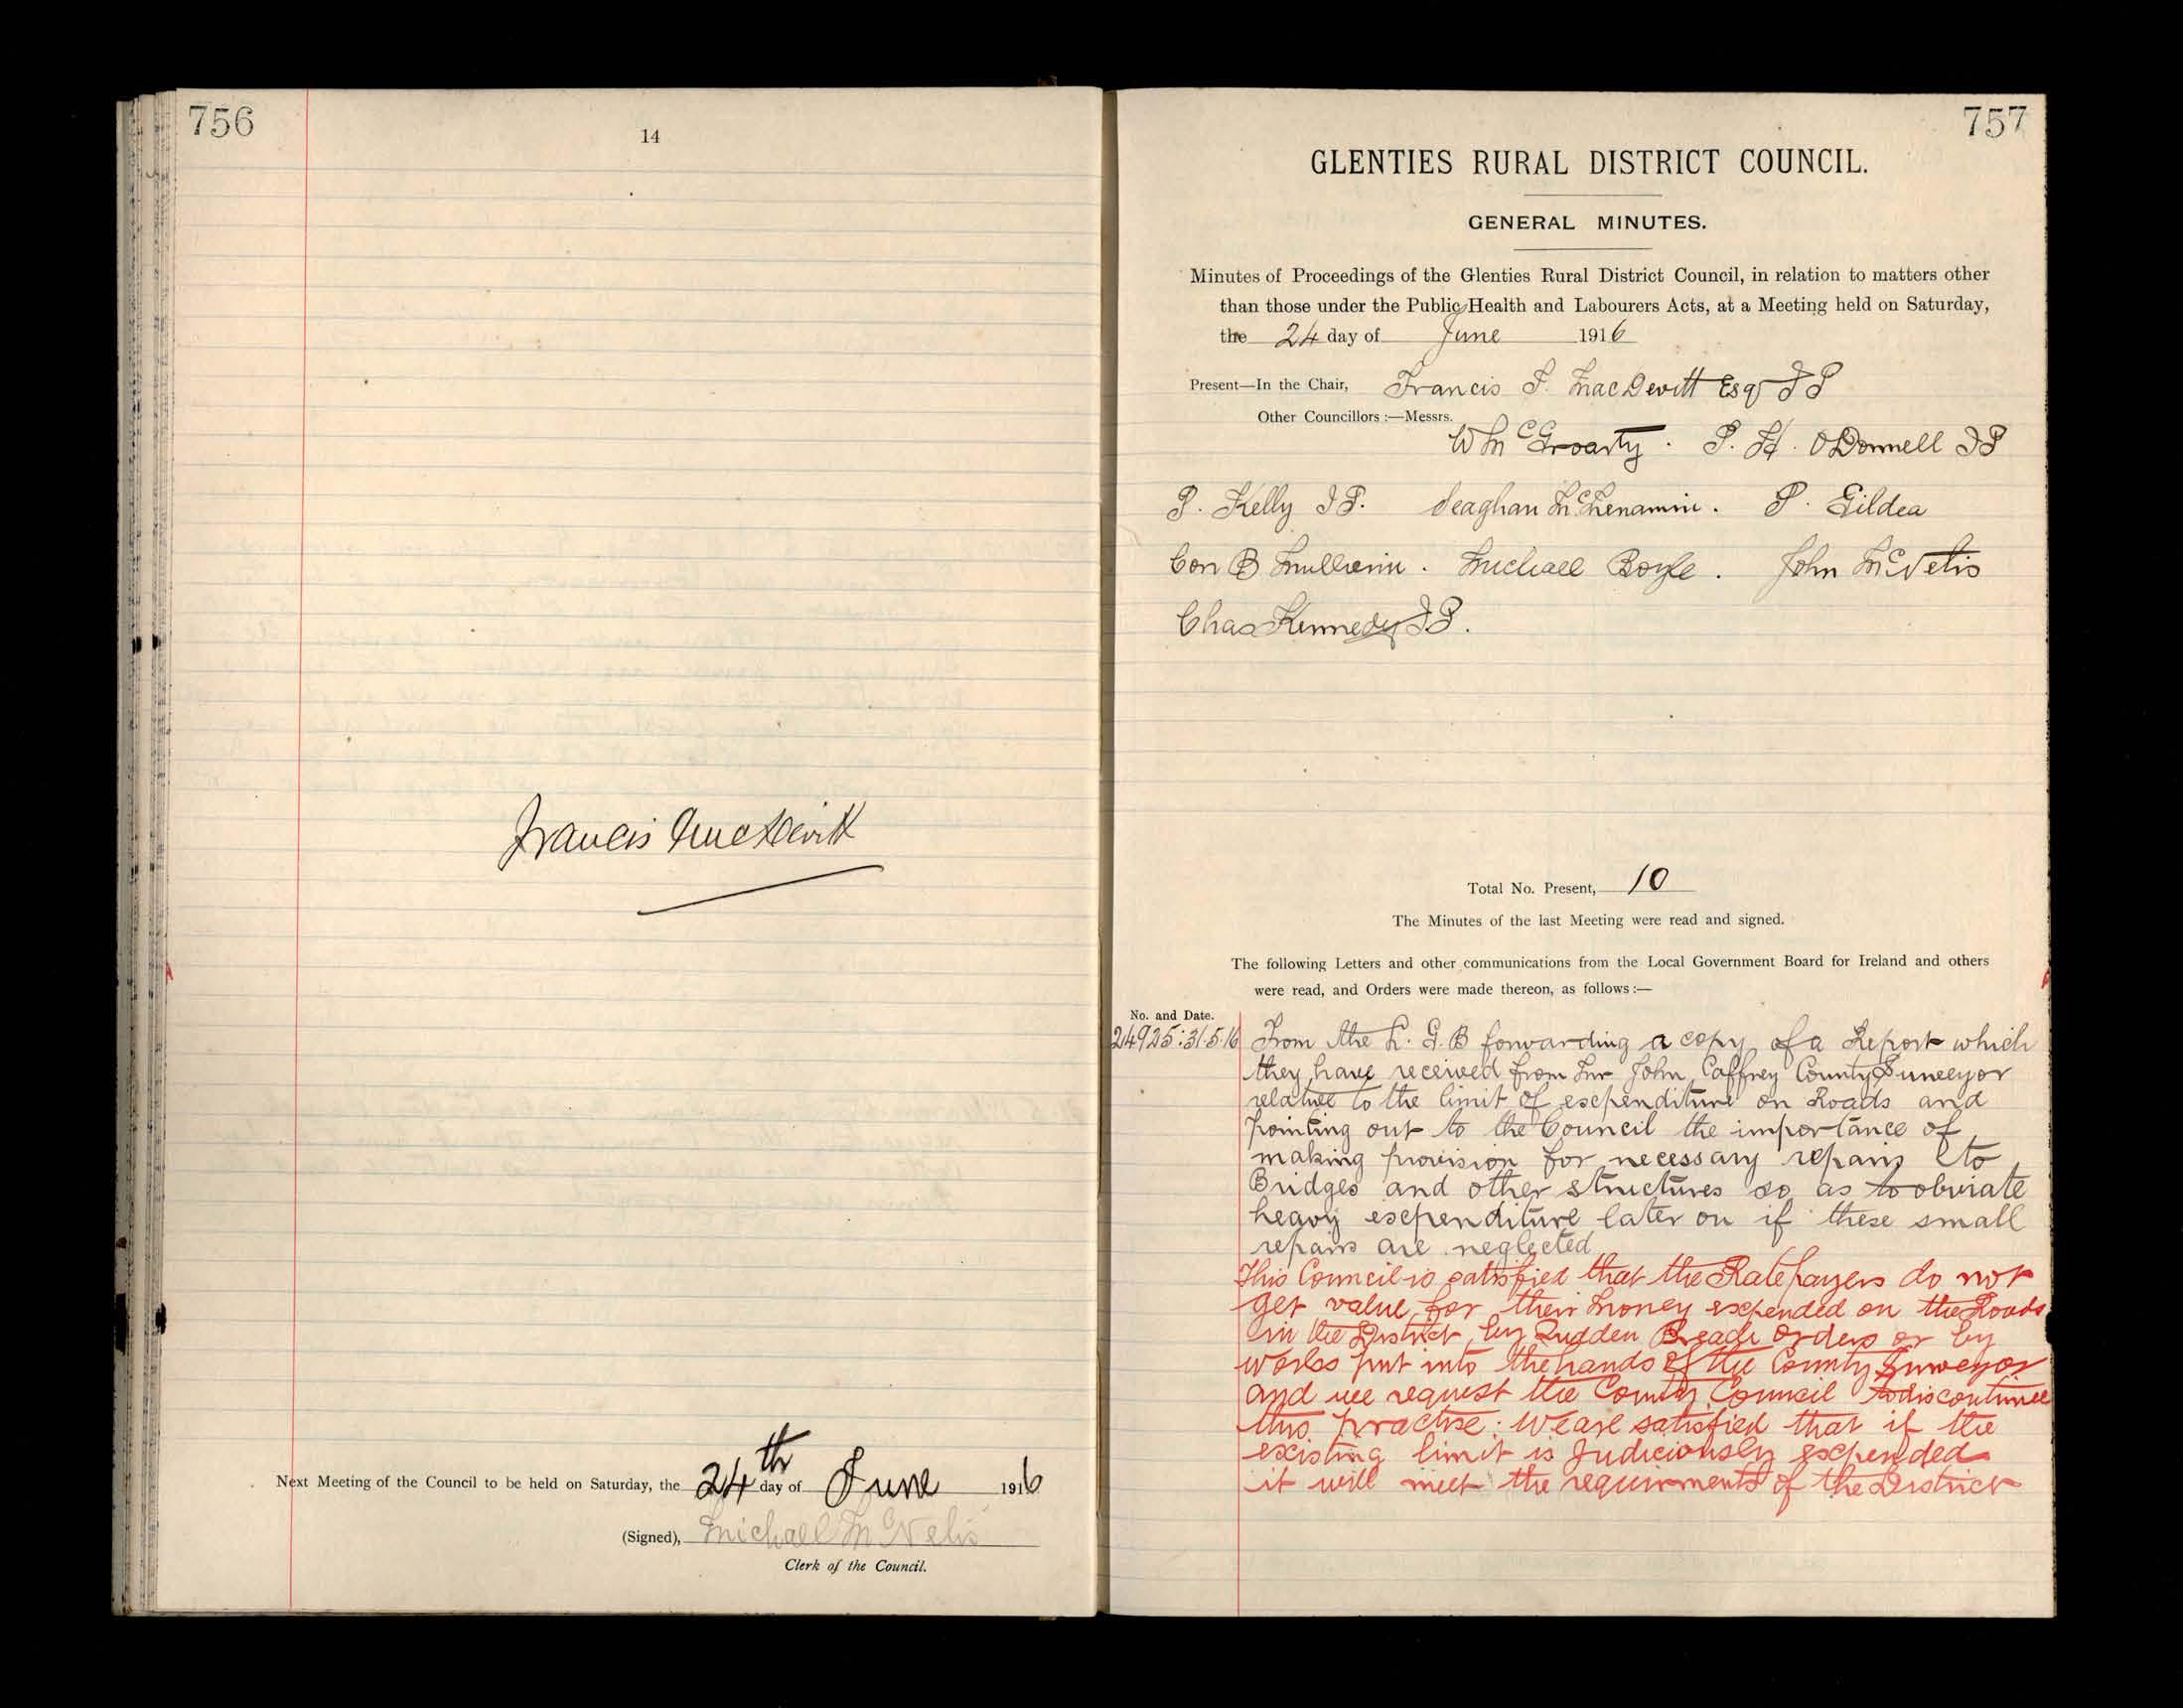 756
14
Francis MacDevitt
Next Meeting of the Council to be held on Saturday, the 24th day of June 1916
(Signed), Michael McNelis
Clerk of the Council.
757
GLENTIES RURAL DISTRICT COUNCIL.
GENERAL MINUTES.
Minutes of Proceedings of the Glenties Rural District Council, in relation to matters other
than those under the Public Health and Labourers Acts, at a Meeting held on Saturday,
the 24 day of June 1916
Present—In the Chair, Francis J. MacDevitt Esq JP
Other Councillors:—Messrs.
W McGroarty. P. H. ODonnell JP
P. Kelly JP. Seaghan McMenamin. P. Gildea
Con B Mullierin. Michael Boyle. John McNelis
Chas Kennedy JP.
Total No. Present, 10
The Minutes of the last Meeting were read and signed.
The following Letters and other communications from the Local Government Board for Ireland and others
were read, and Orders were made thereon, as follows:—
No. and Date.
24925:31.5.16 From the L. G. B forwarding a copy of a Report which
they have received from Mr John Caffrey County Surveyor
relative to the limit of expenditure on Roads and
Pointing out to the Council the importance of
making provision for necessary repairs to
Bridges and other structures so as to obviate
heavy expenditure later on if these small
repairs are neglected
This Council is satisfied that the Ratepayers do not
get value for their money expended on the Roads
in the District by Sudden Breach orders or by
works put into the hands of the County Surveyor
and we request the County Council to discontinue
this practise: We are satisfied that if the
existing limit is Judiciously expended
it will meet the requirments of the District